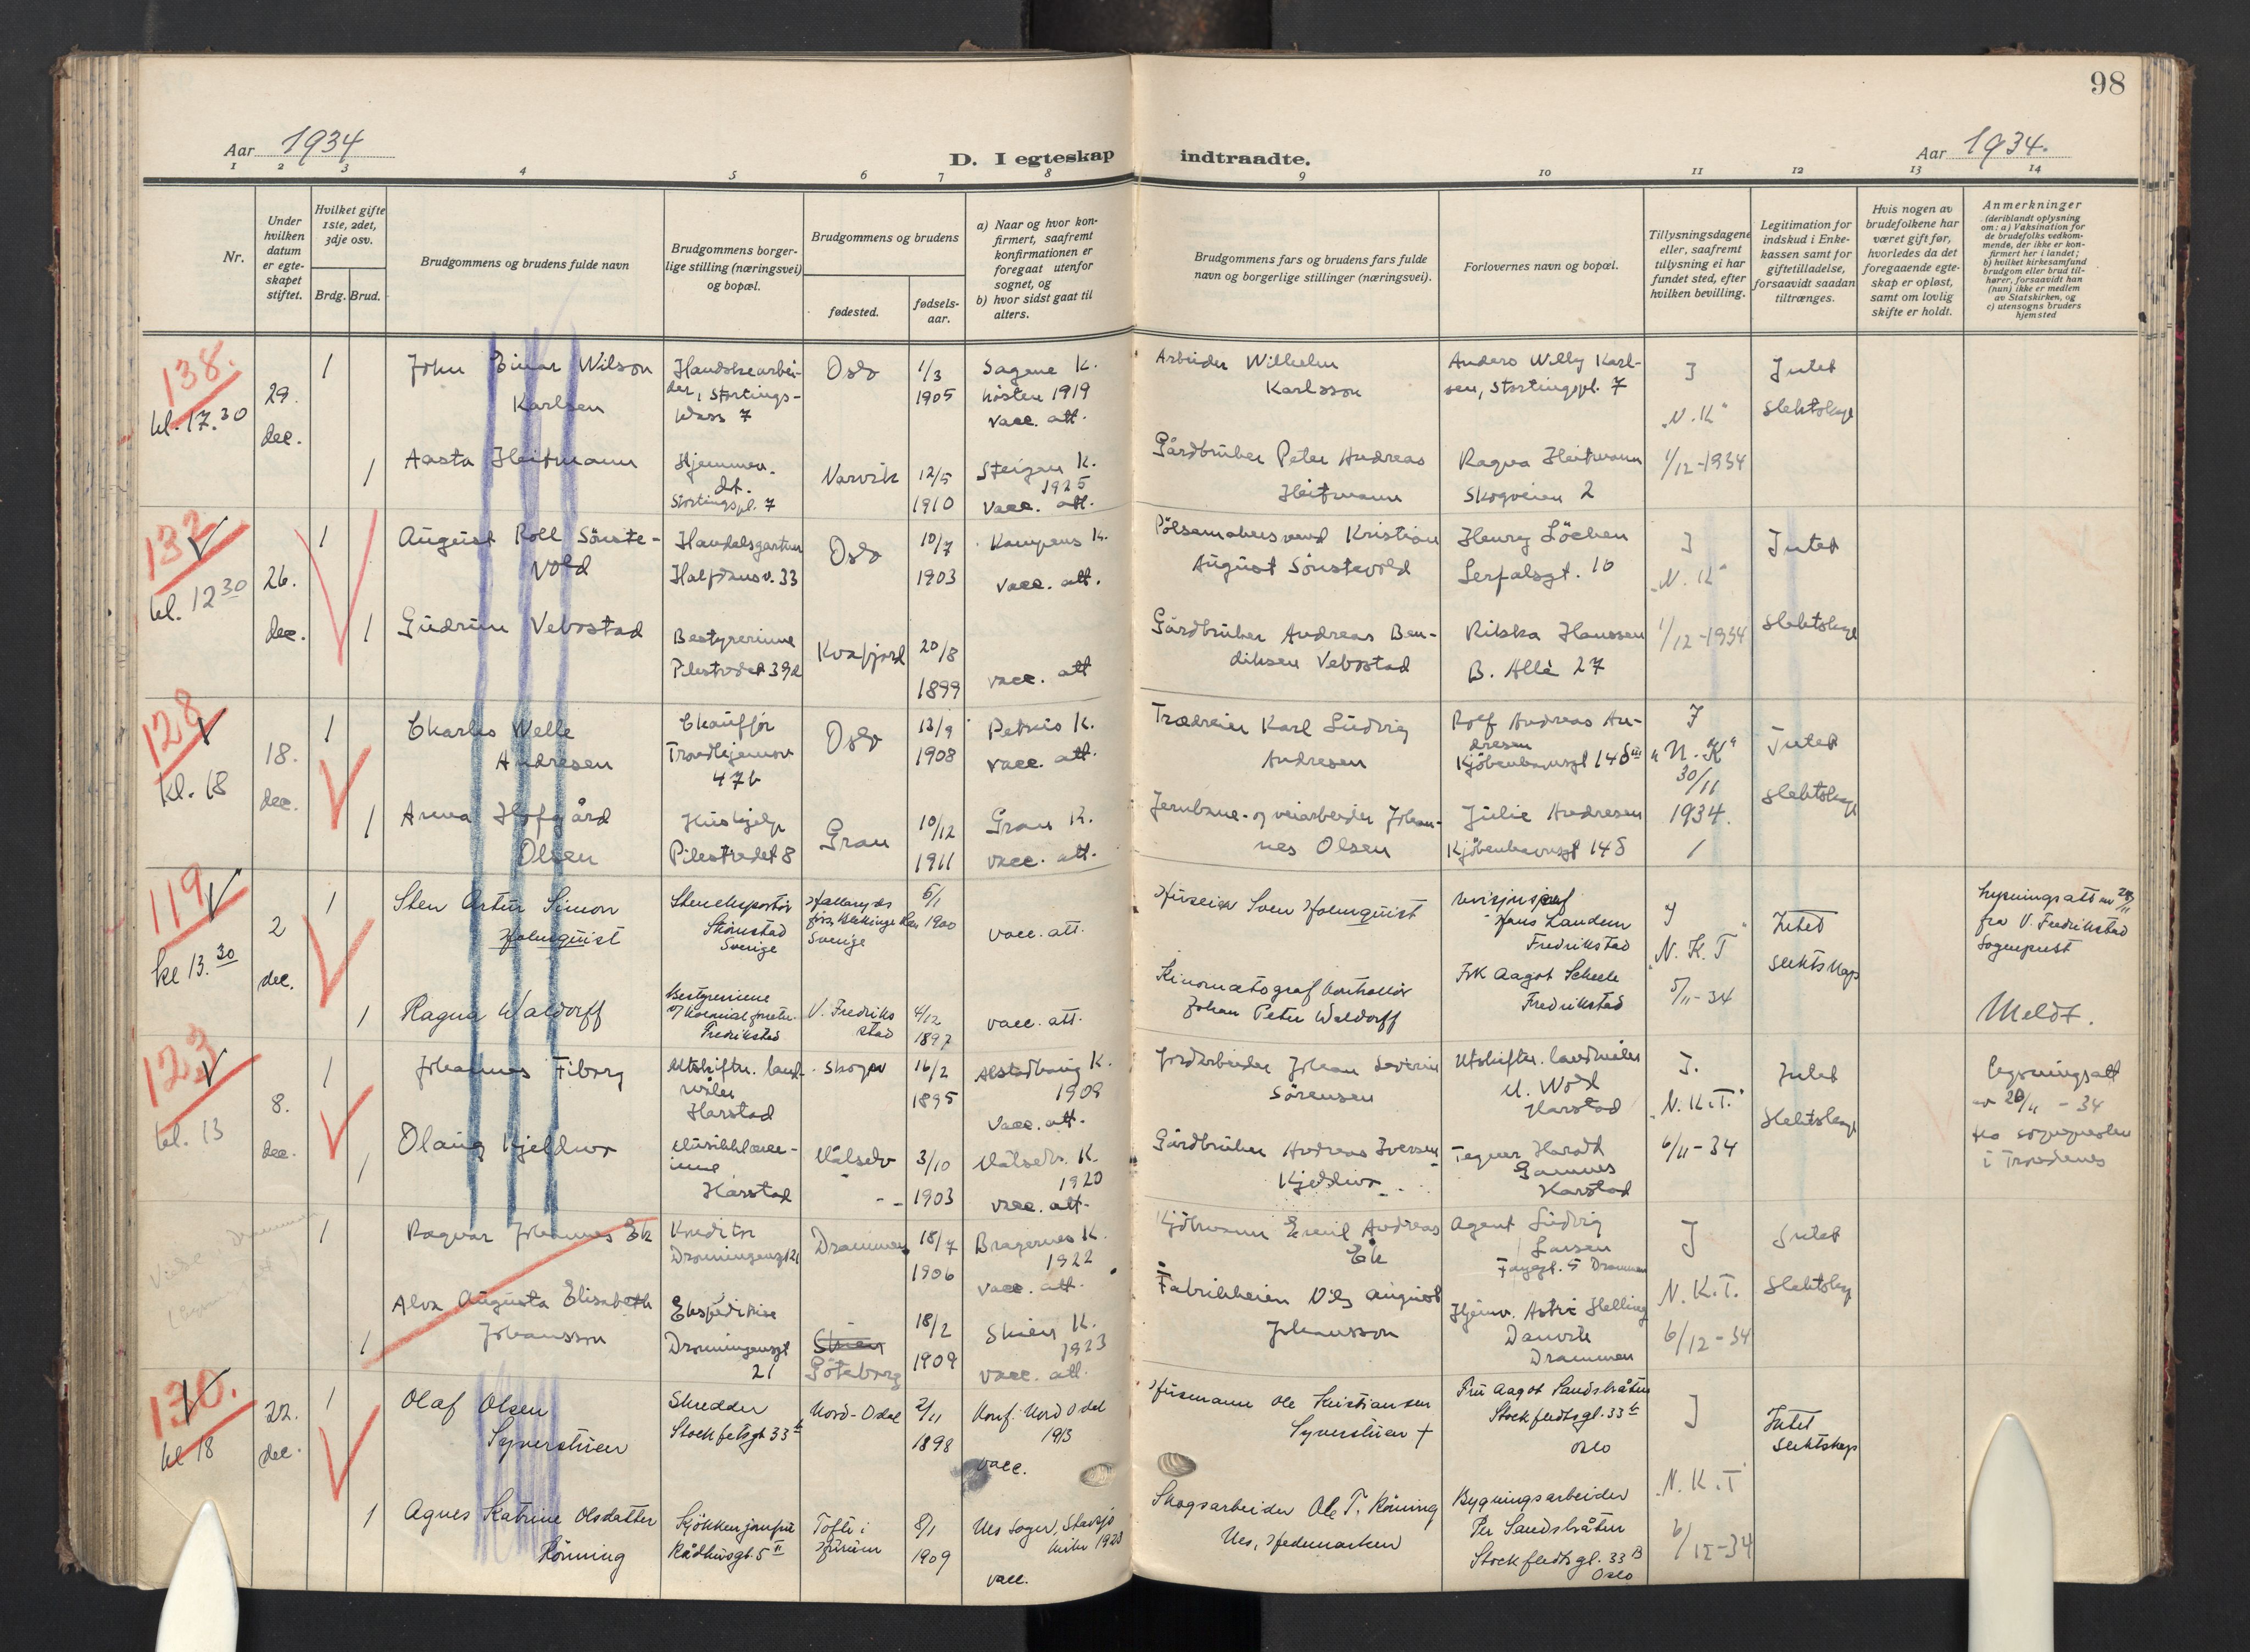 98
Aar 1934
D. I egteskap indtraadte.
Aar 1934.
1 2 3 4 5 6 7 8 9 10 11 12 13 14
Nr.
Under hvilken datum er egteskapet stiftet.
Hvilket gifte 1ste, 2det, 3dje osv.
Brdg. Brud.
Brudgommens og brudens fulde navn
Brudgommens borgerlige stilling (næringsvei) og bopæl.
Brudgommens og brudens
fødested.
fødselsaar.
a) Naar og hvor konfirmert, saafremt konfirmationen er foregaat utenfor sognet, og
b) hvor sidst gaat til alters.
Brudgommens fars og brudens fars fulde navn og borgerlige stillinger (næringsvei).
Forlovernes navn og bopæl.
Tillysningsdagene eller, saafremt tillysning ei har fundet sted, efter hvilken bevilling.
Legitimation for indskud i Enkekassen samt for giftetilladelse, forsaavidt saadan tiltrænges.
Hvis nogen av brudefolkene har været gift før, hvorledes da det foregaaende egteskap er opløst, samt om lovlig skifte er holdt.
Anmerkninger
(deriblandt oplysning om: a) Vaksination for de brudefolks vedkommende, der ikke er konfirmert her i landet;
b) hvilket kirkesamfund brudgom eller brud tilhører, forsaavidt han (hun) ikke er medlem av Statskirken, og
c) utensogns bruders hjemsted
138.
kl. 17.30
29. dec.
1
John Einar Wilson
Karlsen
Oslo
1/3
1905
Sagene K.
høsten 1919
vacc. att.
Arbeider Wilhelm
Karlsson
Anders Willy Karlsen, Stortingspl. 7
J
"N.K"
1/12-1934
Intet
slektskap
1
Aasta Heitmann
Stortingspl. 7
Narvik
12/5
1910
Steigen K.
1925
vacc. att.
Gårdbruker Peter Andreas
Heitmann
Ragna Heitmann
Skogveien 2
132
kl. 12 30
26. dec.
1
August Roll Sönstevold
Handelsgartner
Halfdansv. 33
Oslo
10/7
1903
Kampens K.
vacc. att.
Pölsemakersvend Kristian
August Sönstevold
Henry Löchen
J
"N.K"
1/12-1934
Intet
slektskap
1
Gudrun Vebostad
Bestyrerinne
Kvæfjord
20/8
1899
vacc. att
Gårdbruker Andreas Bendiksen Vebostad
Hanssen
B. Allé 27
128
kl. 18
18. dec.
1
Charles Welle
Andresen
Chauffør
Trondhjemsv
47b
Oslo
13/9
1908
Petrus K.
vacc. att.
Trædreier Karl Ludvig
Andresen
Rolf Andreas Andresen
J
"N.K"
30/11
1934.
Intet
slektskap
1
Anna Hofgård
Olsen
Hushjelp
Pilestredet 8
Gran
10/12
1911
Gran K.
vacc. att.
Jernbane- og veiarbeider Johannes Olsen
Julie Andresen
119
kl 13.30
2 dec.
1
Sten Artur Simon
Holmquist
Steneksportör
Strömstad
Sverige
Sverige
5/1
1900
vacc. att.
Sven Holmquist
Hans Landem
Fredrikstad
J
N.K.T
5/11-34
Intet
slektskap
fra V. Fredrikstad
Sogneprest
Meldt.
1
Ragna Waldorff
Bestyrerinne
Fredrikstad
V. Fredrikstad
4/12
1897
vacc. att.
Kinomatograf kontrollör
Johan Peter Waldorff
Frk Aagot Scheele
Fredrikstad
123
kl. 13
8. dec.
1
Johannes Fiborg
Utskiftn. landmåler
Harstad
16/2
1895
Alstadhaug K.
1909
vacc. att.
Jordarbeider Johan Severin
Sörensen
Utskiftn. landmåler
M. Wold
Harstad
J.
"N.K.T."
6/11-34
Intet
slektskap
lysningsatt
av 20/11-34
fra sognepresten
i Trondenes
1
Olaug Kjeldmo
Musikklærerinne
Harstad
Målselv
3/10
1903
Målselv. K.
1920
vacc. att.
Gårdbruker Andreas Iversen
Kjeldmo
Tegner Harald
Harstad
1
Ragnar Johannes Ek
Drammen
18/7
1906
Bragernes K.
1922
vacc. att.
Kjöbmann Emil Andreas
Ek
Agent Ludvig
Larsen
J
N.K.T.
6/12-34
Intet
slektskap
1
Alva Augusta Elisabeth
Johansson
Ekspeditrise
Dronningensgt
21
Skien
Göteborg
18/2
1909
Skien K.
1923
vacc. att.
Johansson
Hjemv. Astri Helling
Danvik
Drammen
130.
kl 18
22. dec.
1
Olaf Olsen
Syverstuen
Skredder
Stockfletsgt 33 b
Nord-Odal
2/11
1898
Konf. Nord Odal
1913
vacc.
Husmann Ole Kristiansen
Syverstuen +
Fru Aagot Sandsbråten
Stockfledtsgt. 33 b
Oslo
J
"N.K.T"
6/12-34
Intet
slektskap
1
Agnes Katrine Olsdatter
Rönning
Kjökkenjomfru
Rådhusgt. 5 II
Tofte i
Hurum
8/1
1909
vacc.
Skogsarbeider Ole T. Rönning
Nes, Hedemarken
Bygningsarbeider
Per Sandsbråten
Stockfledtsgt. 33 B
Oslo